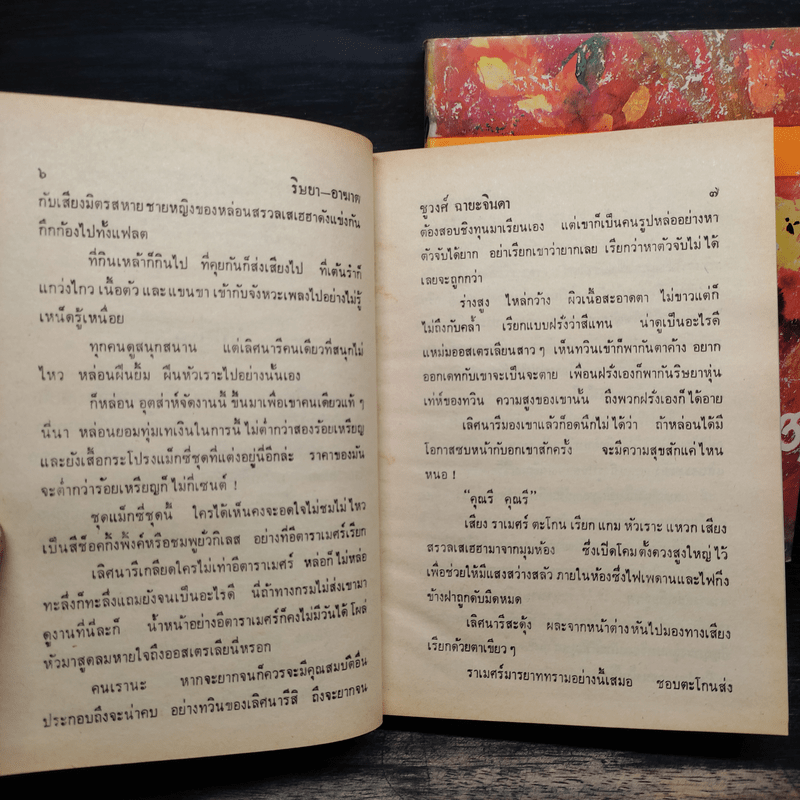 ๖
ริษยา—อาฆาต
กับเสียงมิตรสหายชายหญิงของหล่อนสรวลเสเฮฮาดังแข่งกัน
กึกก้องไปทั้งแฟลต
ที่กินเหล้าก็กินไป ที่คุยกันก็ส่งเสียงไป ที่เต้นรำก็
แกว่งไกว เนื้อตัว และแขนขา เข้ากับจังหวะเพลงไปอย่างไม่รู้
เหน็ดรู้เหนื่อย
ทุกคนดูสนุกสนาน แต่เลิศนารีคนเดียวที่สนุกไม่
ไหว หล่อนฝืนยิ้ม ฝืนหัวเราะไปอย่างนั้นเอง
ก็หล่อน อุตส่าห์จัดงานนี้ ขึ้นมาเพื่อเขาคนเดียวแท้ ๆ
นี่นา หล่อนยอมทุ่มเทเงินในการนี้ ไม่ต่ำกว่าสองร้อยเหรียญ
และยังเสื้อกระโปรงแม็กซี่ชุดที่แต่งอยู่นี่อีกล่ะ ราคาของมัน
จะต่ำกว่าร้อยเหรียญก็ ไม่กี่เซนต์ !
ชุดแม็กซี่ชุดนี้ ใครได้เห็นคงจะอดใจไม่ชมไม่ไหว
เป็นสีช็อคกิ้งพิ้งค์หรือชมพูยั่วกิเลส อย่างที่อีตาราเมศร์เรียก
เลิศนารีเกลียดใครไม่เท่าอีตาราเมศร์ หล่อก็ไม่หล่อ
ทะลึ่งก็ทะลึ่งแถมยังจนเป็นอะไรดี นี่ถ้าทางกรมไม่ส่งเขามา
ดูงานที่นี่ละก็ น้ำหน้าอย่างอีตาราเมศร์ก็คงไม่มีวันได้ โผล่
หัวมาสูดลมหายใจถึงออสเตรเลียนี่หรอก
คนเรานะ หากจะยากจนก็ควรจะมีคุณสมบัติอื่น
ประกอบถึงจะน่าคบ อย่างทวินของเลิศนารีสิ ถึงจะยากจน
ชูวงศ์ ฉายะจินดา
๗
ต้องสอบชิงทุนมาเรียนเอง แต่เขาก็เป็นคนรูปหล่ออย่างหา
ตัวจับได้ยาก อย่าเรียกเขาว่ายากเลย เรียกว่าหาตัวจับไม่ได้
เลยจะถูกกว่า
ร่างสูง ไหล่กว้าง ผิวเนื้อสะอาดตา ไม่ขาวแต่ก็
ไม่ถึงกับคล้ำ เรียกแบบฝรั่งว่าสีแทน น่าดูเป็นอะไรดี
แหม่มออสเตรเลียนสาว ๆ เห็นทวินเข้าก็พากันตาค้าง อยาก
ออกเดทกับเขาจะเป็นจะตาย เพื่อนฝรั่งเองก็พากันริษยาหุ่น
เท่ห์ของทวิน ความสูงของเขานั้น ถึงพวกฝรั่งเองก็ได้อาย
เลิศนารีมองเขาแล้วก็อดนึกไม่ได้ว่า ถ้าหล่อนได้มี
โอกาสซบหน้ากับอกเขาสักครั้ง จะมีความสุขสักแค่ไหน
หนอ !
“คุณรี คุณรี”
เสียง ราเมศร์ ตะโกน เรียก แกม หัวเราะ แหวก เสียง
สรวลเสเฮฮามาจากมุมห้อง ซึ่งเปิดโคมตั้งดวงสูงใหญ่ ไว้
เพื่อช่วยให้มีแสงสว่างสลัว ภายในห้องซึ่งไฟเพดานและไฟกิ่ง
ข้างฝาถูกดับมิดหมด
เลิศนารีสะดุ้ง ผละจากหน้าต่างหันไปมองทางเสียง
เรียกด้วยตาเขียว ๆ
ราเมศร์มารยาททรามอย่างนี้เสมอ ชอบตะโกนส่ง